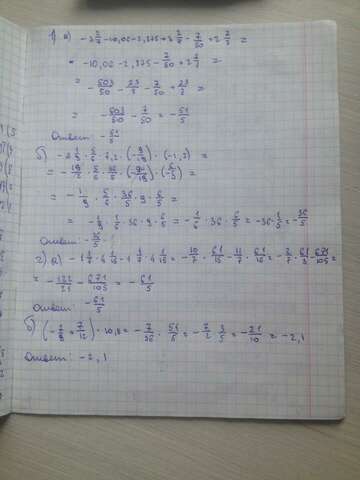 1) а) - 3 2/7 - 10,06 - 2,875 + 3 2/7 - 7/50 + 2 7/8 =
= -10,06 - 2,875 - 7/50 + 2 7/8 =
= - 503/50 - 23/8 - 7/50 + 23/8 =
= - 503/50 - 7/50 = - 51/5
Ответ: - 51/5
б) - 2 1/9 · 5/6 · 7,2 · (- 9/19) · (-1,2) =
= - 19/9 · 5/6 · 36/5 · (- 9/19) · (- 6/5) =
= - 1/9 · 5/6 · 36/5 · 9 · 6/5 =
= - 1/9 · 1/6 · 36 · 9 · 6/5 = - 1/6 · 36 · 6/5 = -36 · 1/5 = - 36/5
Ответ: - 36/5
2) а) - 1 3/7 · 4 1/15 - 1 4/7 · 4 1/15 = - 10/7 · 61/15 - 11/7 · 61/15 = - 2/7 · 61/3 - 671/105 =
= - 122/21 - 671/105 = - 61/5
Ответ: - 61/5
б) (- 7/9 + 7/12) · 10,8 = - 7/36 · 54/5 = - 7/2 · 3/5 = - 21/10 = -2,1
Ответ: -2,1